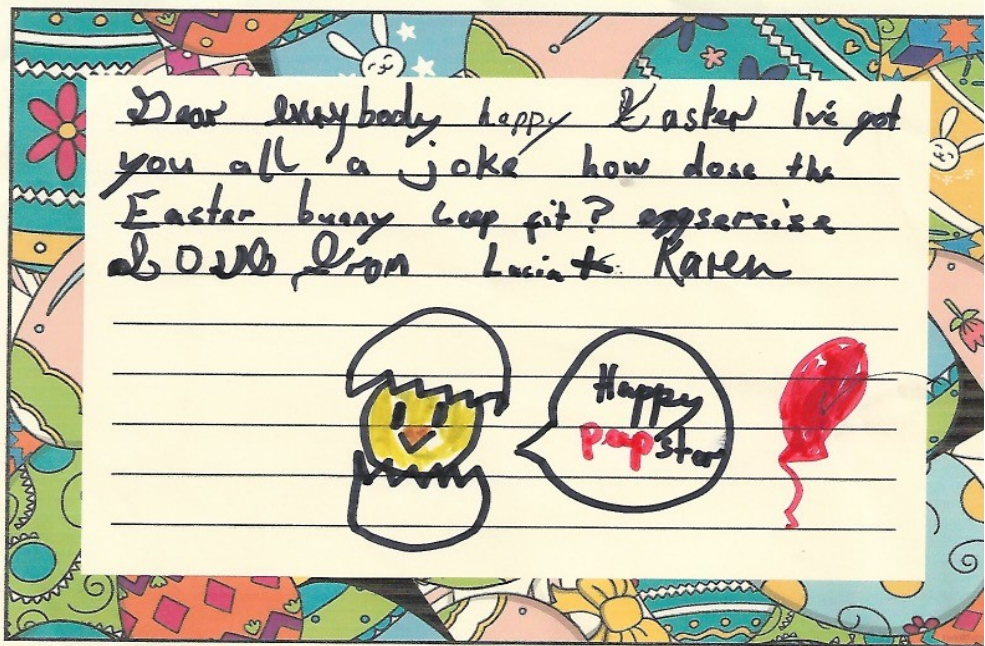 Dear evrybody happy Easter I've got
you all a joke how dose the
Easter bunny keep fit? eggsersise
LOVE From Lucia & Karen
Happy
pop star